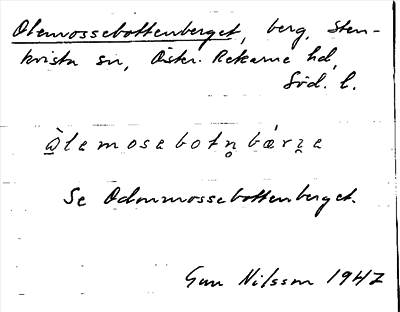 Olemossebottenberget, berg, Sten-
kvista sn, Östr. Rekarne hd,
Söd. l.
ὼlemosebotn̥bárʒe
Se Odonmossebottenberget.
Gun Nilsson 1947